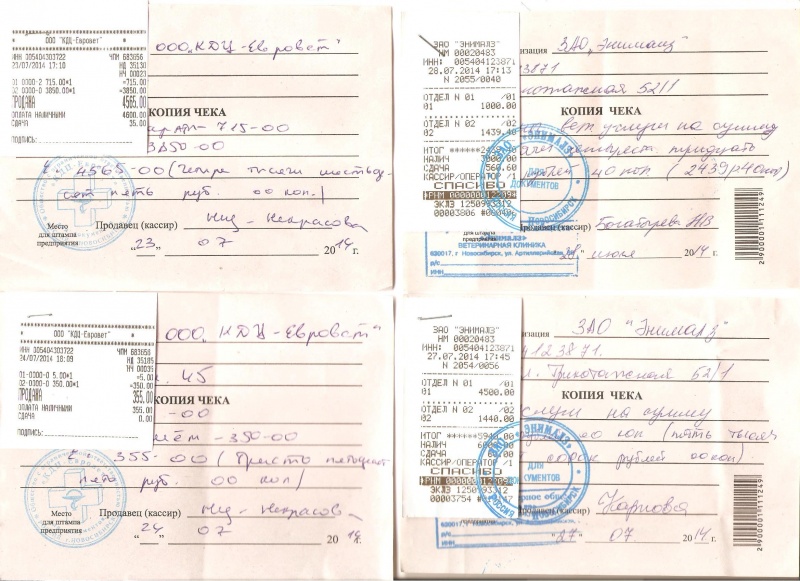 ООО "КДЦ-Евровет"
ИНН 005404303722 ЧПМ 683656
23/07/2014 17:10 НД 35130
НЧ 00023
01 0000-2 715.00*1 =715.00
02 0000-0 3850.00*1 =3850.00
ПРОДАЖА 4565.00
ОПЛАТА НАЛИЧНЫМИ 4600.00
СДАЧА 35.00
ПОДПИСЬ:
ООО "КДЦ-Евровет"
КОПИЯ ЧЕКА
715-00
3850-00
4565-00 (Четыре тысячи пятьсот
пять руб. 00 коп.)
Продавец (кассир) Некрасова
Место
для штампа
предприятия
"23" 07 2014 г.
ЗАО "ЭНИМАЛЗ"
НМ 00020483
ИНН: 005404123871
28.07.2014 17:13
N 2055/0040
ОТДЕЛ N 01 /01
01 1000.00
ОТДЕЛ N 02 /02
02 1439.40
НАЛИЧ 3000.00
СДАЧА 560.60
КАССИР/ОПЕРАТОР /1
СПАСИБО
ЭКЛЗ 1250993312
00003806
низация ЗАО "Энималз"
3871
52/1
КОПИЯ ЧЕКА
вет услуги на сумму
тридцать
40 коп (2439р40коп)
Продавец (кассир) Богатырева
для штампа
предприятия
ВЕТЕРИНАРНАЯ КЛИНИКА
630017, г. Новосибирск, ул. Артиллерийская
р/с
ИНН
ДЛЯ ДОКУМЕНТОВ
НОВОСИБИРСК
"28" июля 2014 г.
2900001111249
ООО "КДЦ-Евровет"
ИНН 005404303722 ЧПМ 683656
24/07/2014 18:09 НД 35185
НЧ 00035
01 0000-0 5.00*1 =5.00
02 0000-0 350.00*1 =350.00
ПРОДАЖА 355.00
ОПЛАТА НАЛИЧНЫМИ 355.00
СДАЧА 0.00
ПОДПИСЬ:
ООО "КДЦ-Евровет"
45
КОПИЯ ЧЕКА
-00
-350-00
355-00 (Триста пятьдесят
пять руб. 00 коп)
Продавец (кассир) Некрасова
Место
для штампа
предприятия
"24" 07 2014 г.
ЗАО "ЭНИМАЛЗ"
НМ 00020483
ИНН: 005404123871
27.07.2014 17:45
N 2054/0056
ОТДЕЛ N 01 /01
01 4500.00
ОТДЕЛ N 02 /02
02 1440.00
ИТОГ ******5940.00
НАЛИЧ
СДАЧА 60.00
КАССИР/ОПЕРАТОР /1
СПАСИБО
ЭКЛЗ 1250993312
00003754
низация ЗАО "Энималз"
4123871.
л. Трикотажная 52/1
КОПИЯ ЧЕКА
услуги на сумму
00 коп (пять тысяч
сорок рублей 00 коп)
Продавец (кассир) Карпова
ДЛЯ
ДОКУМЕНТОВ
РОССИЯ
"27" 07 2014 г.
2900001111249